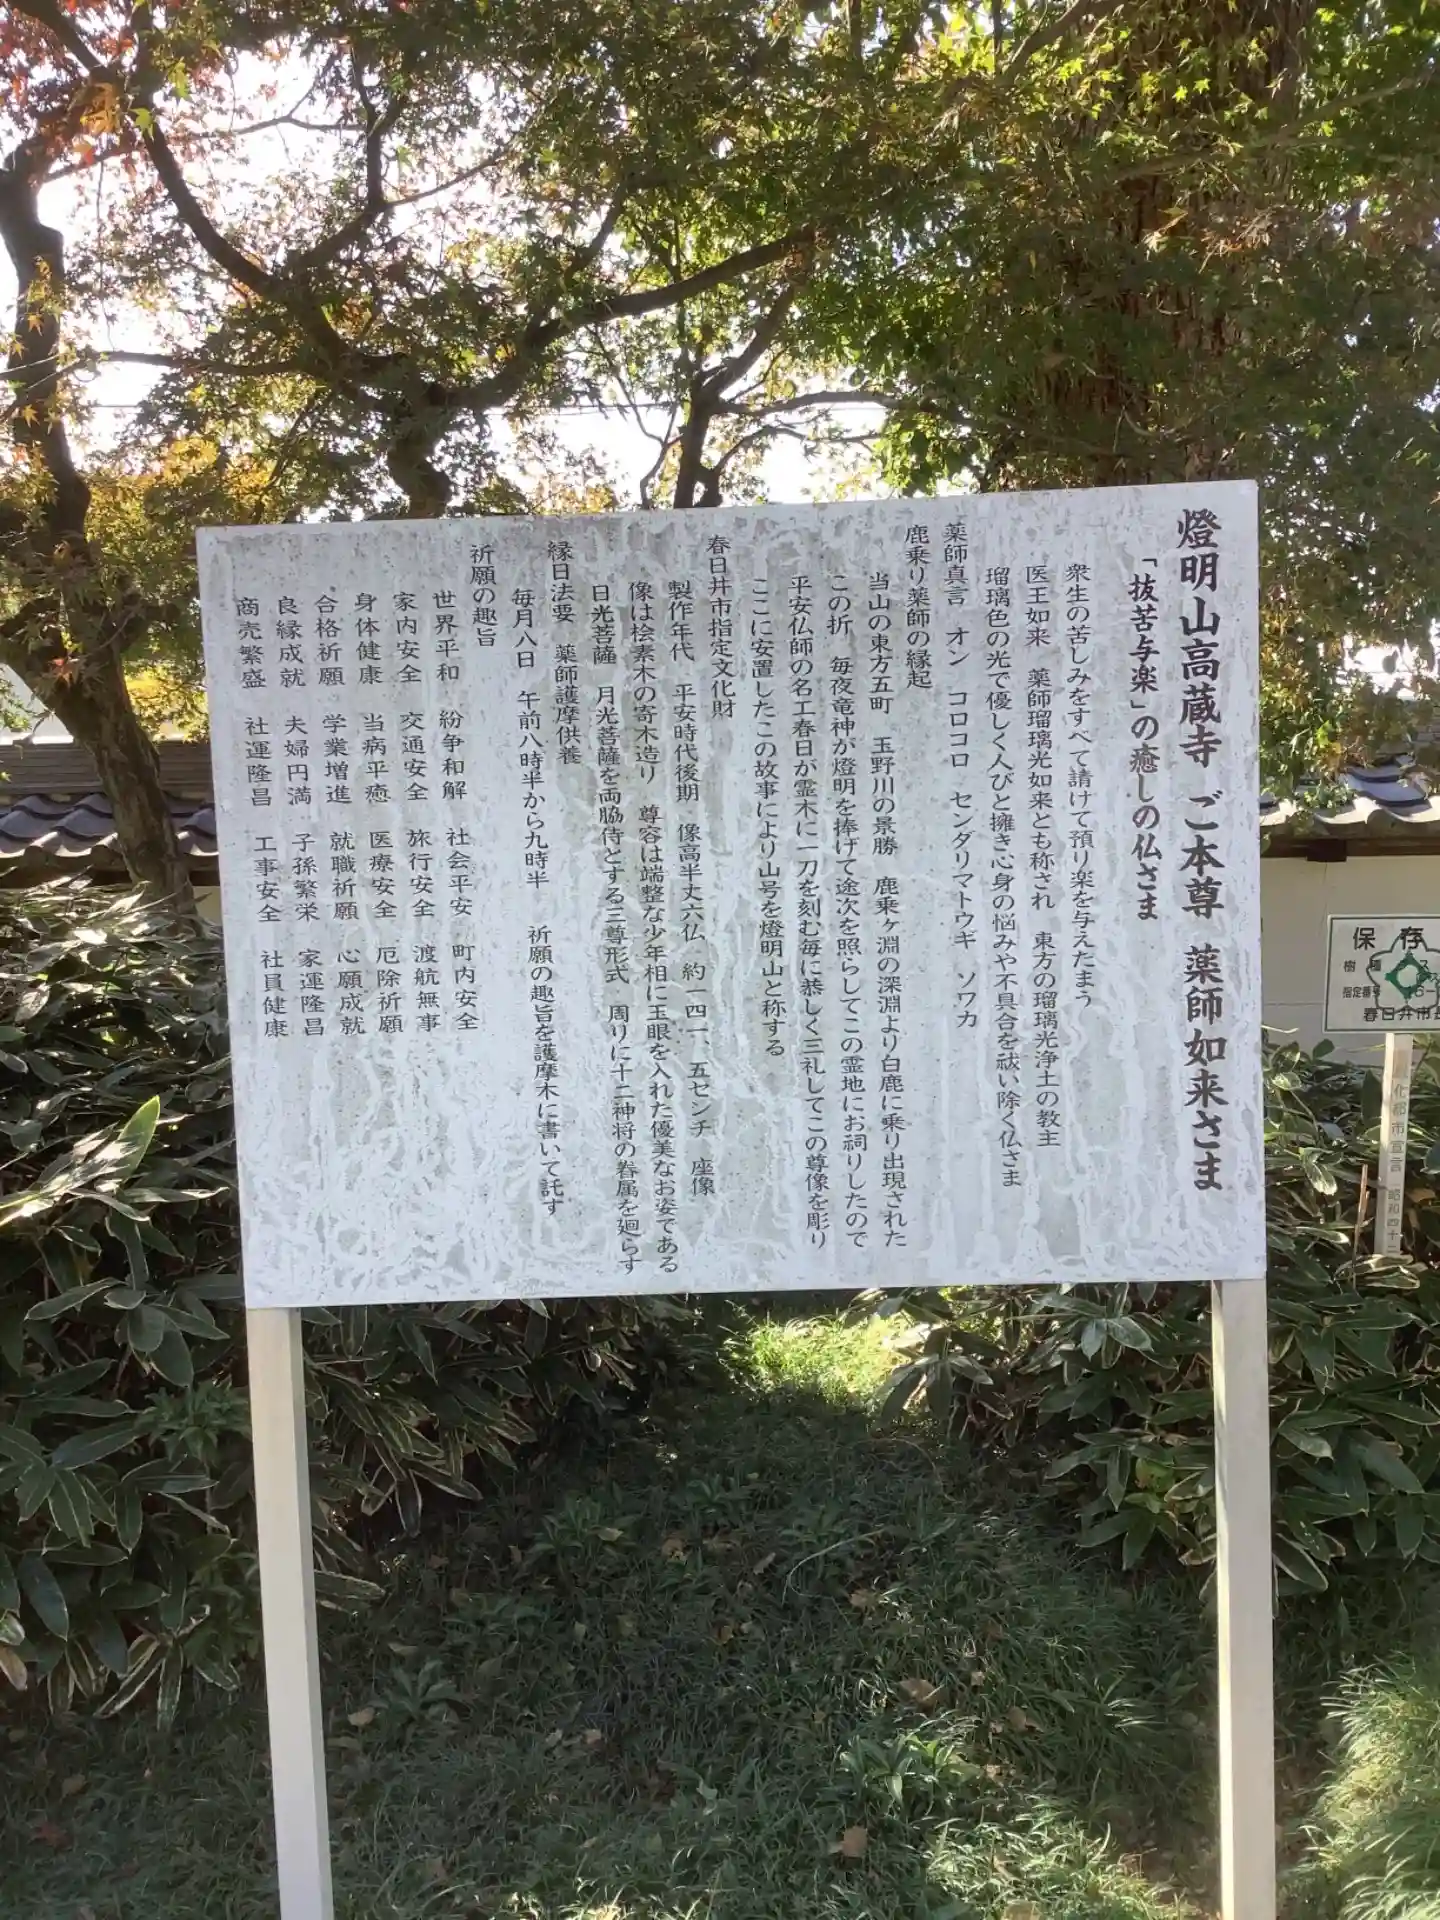 燈明山高蔵寺 ご本尊 薬師如来さま
「抜苦与楽」の癒しの仏さま
衆生の苦しみをすべて請けて預り楽を与えたまう
医王如来 薬師瑠璃光如来とも称され 東方の瑠璃光浄土の教主
瑠璃色の光で優しく人びと擁き心身の悩みや不具合を祓い除く仏さま
薬師真言 オン コロコロ センダリマトウギ ソワカ
鹿乗り薬師の縁起
当山の東方五町 玉野川の景勝 鹿乗ヶ淵の深淵より白鹿に乗り出現された
この折 毎夜竜神が燈明を捧げて途次を照らしてこの霊地にお祠りしたので
平安仏師の名工春日が霊木に一刀を刻む毎に恭しく三礼してこの尊像を彫り
ここに安置したこの故事により山号を燈明山と称する
春日井市指定文化財
製作年代 平安時代後期 像高半丈六仏 約一四一、五センチ 座像
像は桧素木の寄木造り 尊容は端整な少年相に玉眼を入れた優美なお姿である
日光菩薩 月光菩薩を両脇侍とする三尊形式 周りに十二神将の眷属を廻らす
縁日法要 薬師護摩供養
毎月八日 午前八時半から九時半 祈願の趣旨を護摩木に書いて託す
祈願の趣旨
世界平和 紛争和解 社会平安 町内安全
家内安全 交通安全 旅行安全 渡航無事
身体健康 当病平癒 医療安全 厄除祈願
合格祈願 学業増進 就職祈願 心願成就
良縁成就 夫婦円満 子孫繁栄 家運隆昌
商売繁盛 社運隆昌 工事安全 社員健康
保存
樹種
指定番号
春日井市長
化都市宣言 昭和四十